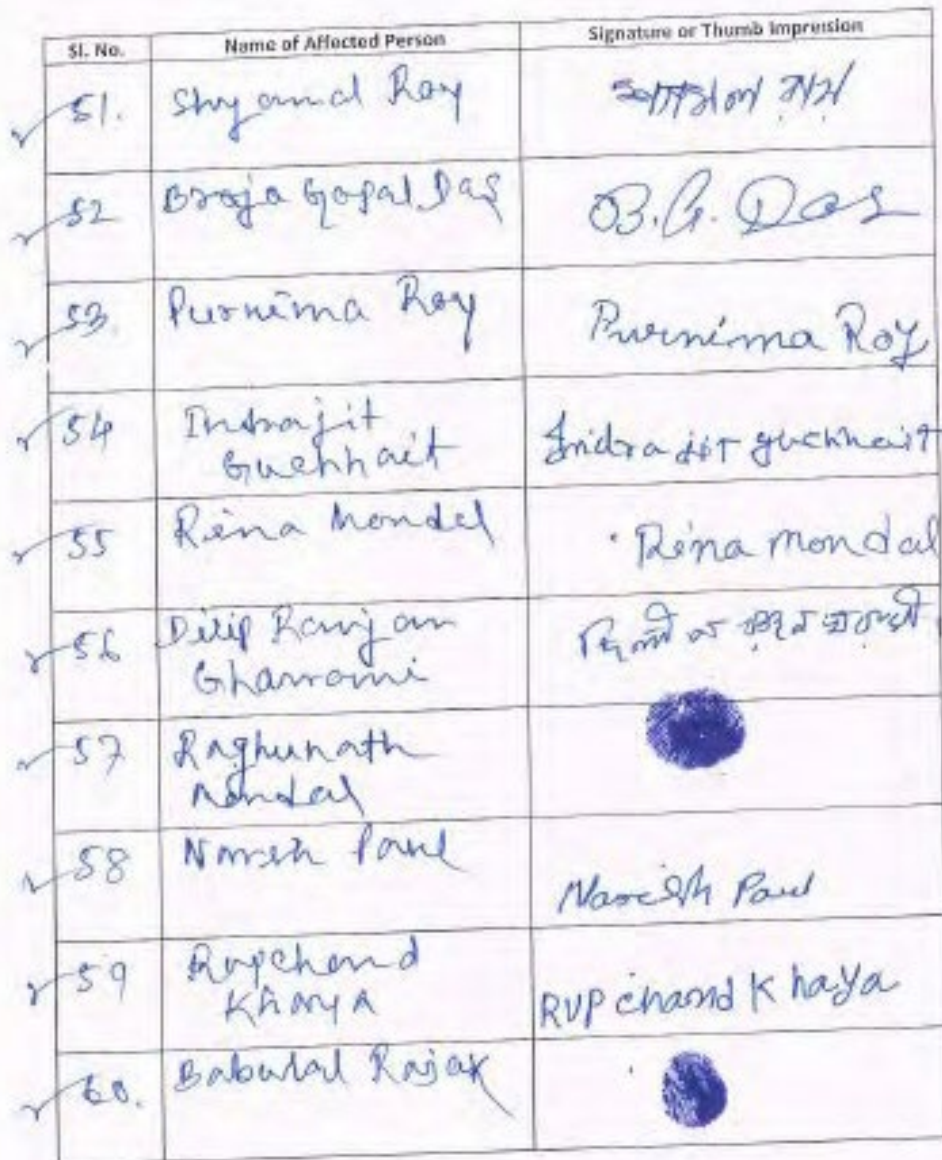 Sl. No. Name of Affected Person Signature or Thumb Impression
51. Shyamal Roy শ্যামল রায়
52 Broja Gopal Das B.G. Das
53. Purnima Roy Purnima Roy
54 Indrajit Indrajit guchhait
Guchhait
55 Rina Mondal Rina mondal
56 Dilip Ranjan
Gharami
57 Raghunath
Mondal
58 Naresh Paul Naresh Paul
59 Rupchand RUP chand Khaya
Khaya
60. Babulal Rajak